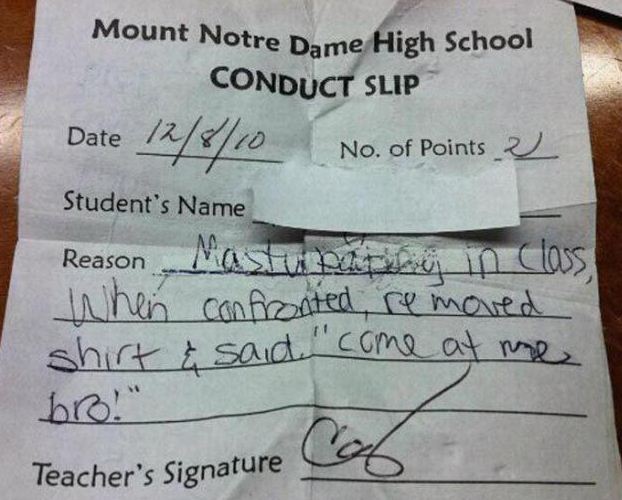 Mount Notre Dame High School
CONDUCT SLIP
Date 12/8/10 No. of Points 2
Student's Name
Reason Masturbating in class,
When confronted, removed
shirt & said "come at me,
bro!"
Teacher's Signature